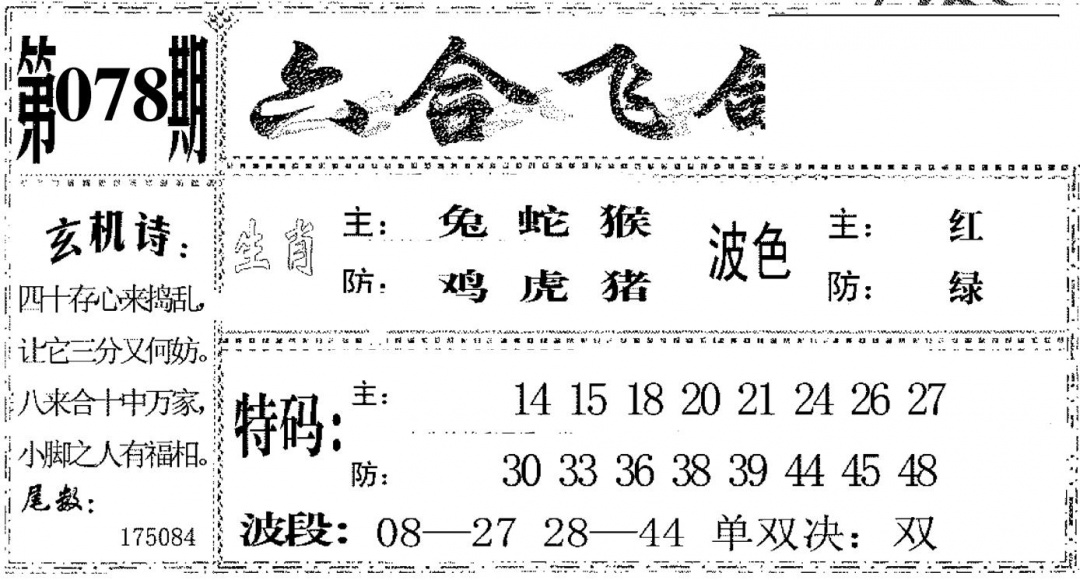 第078期
六合飞
玄机诗：
四十存心来捣乱，
让它三分又何妨。
八来合十中万家，
小脚之人有福相。
尾数：
175084
生肖
主： 兔 蛇 猴
防： 鸡 虎 猪
波色
主： 红
防： 绿
特码：
主： 14 15 18 20 21 24 26 27
防： 30 33 36 38 39 44 45 48
波段：08—27 28—44 单双决：双